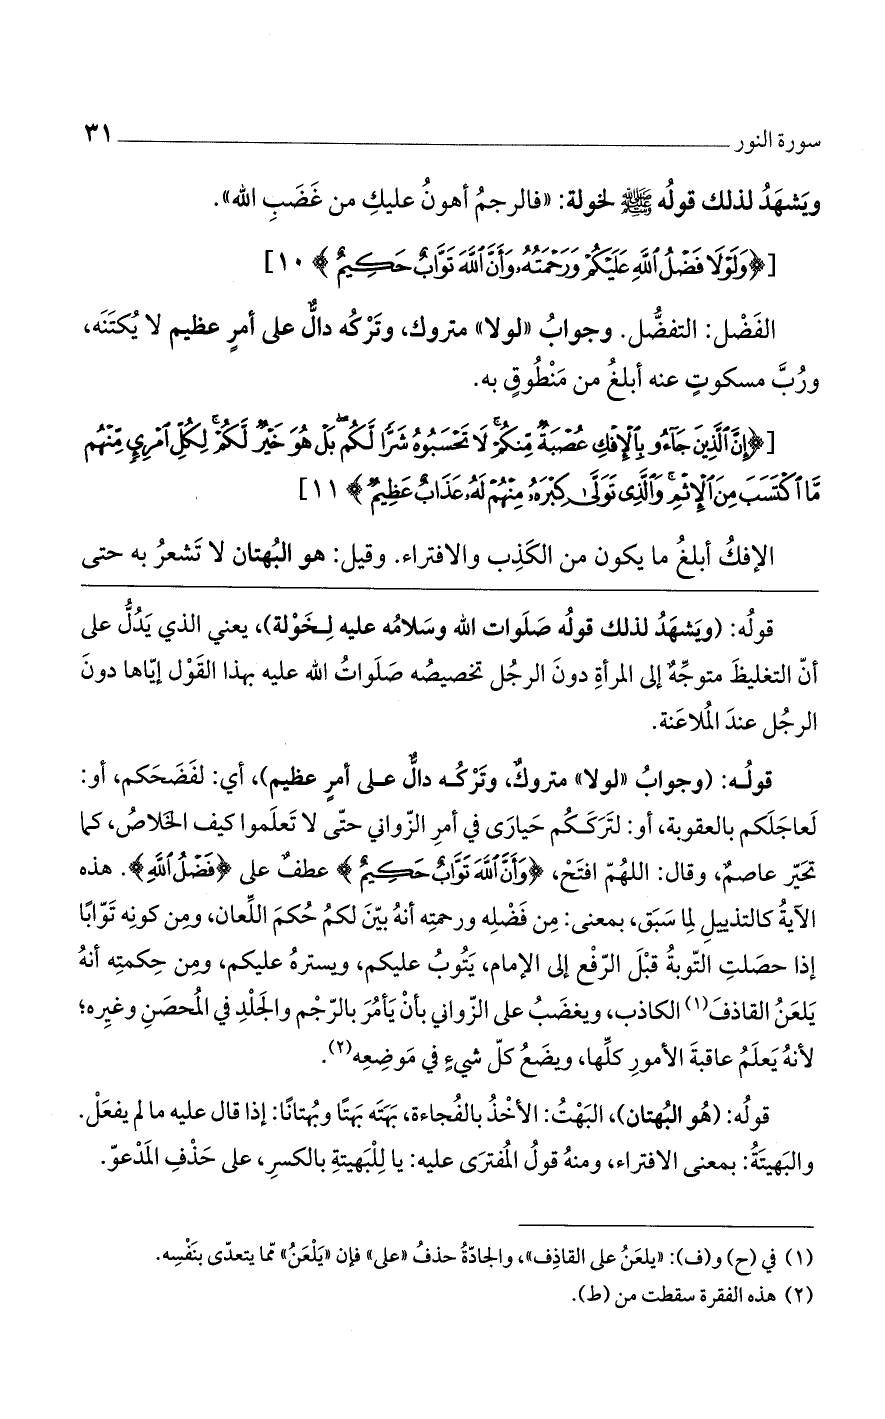 سورة النور ٣١
ويَشهَدُ لذلك قولُه ﷺ لخولة: «فالرجمُ أهونُ عليكِ من غَضَبِ الله».
[﴿وَلَوْلَا فَضْلُ ٱللَّهِ عَلَيْكُمْ وَرَحْمَتُهُۥ وَأَنَّ ٱللَّهَ تَوَّابٌ حَكِيمٌ﴾ ١٠]
الفَضْل: التفضُّل. وجوابُ «لولا» متروك، وتَرْكُه دالٌّ على أمرٍ عظيم لا يُكتَنَه،
ورُبَّ مسكوتٍ عنه أبلغُ من مَنْطُوقٍ به.
[﴿إِنَّ ٱلَّذِينَ جَآءُو بِٱلْإِفْكِ عُصْبَةٌ مِّنكُمْ ۚ لَا تَحْسَبُوهُ شَرًّا لَّكُم ۖ بَلْ هُوَ خَيْرٌ لَّكُمْ ۚ لِكُلِّ ٱمْرِيٍٕ مِّنْهُم
مَّا ٱكْتَسَبَ مِنَ ٱلْإِثْمِ ۚ وَٱلَّذِى تَوَلَّىٰ كِبْرَهُۥ مِنْهُمْ لَهُۥ عَذَابٌ عَظِيمٌ﴾ ١١]
الإفكُ أبلغُ ما يكون من الكَذِب والافتراء. وقيل: هو البُهتان لا تَشعرُ به حتى
قولُه: (ويَشهَدُ لذلك قولُه صَلَوات الله وسَلامُه عليه لِـخَوْلة)، يعني الذي يَدُلُّ على
أنّ التغليظَ متوجِّهٌ إلى المرأةِ دونَ الرجُل تخصيصُه صَلَواتُ الله عليه بهذا القَوْل إيّاها دونَ
الرجُل عندَ المُلاعَنة.
قولُـه: (وجوابُ «لولا» متروكٌ، وتَرْكُـه دالٌّ عـلى أمرٍ عظيم)، أي: لفَضَحَكم، أو:
لَعاجَلَكم بالعقوبة، أو: لتَرَكَـكُم حَيارَى في أمرِ الزّواني حتّى لا تَعلَموا كيف الخَلاصُ، كما
تحَيّر عاصمٌ، وقال: اللهُمّ افتَحْ، ﴿وَأَنَّ ٱللَّهَ تَوَّابٌ حَكِيمٌ﴾ عطفٌ على ﴿فَضْلُ ٱللَّهِ﴾. هذه
الآيةُ كالتذييلِ لِما سَبَق، بمعنى: مِن فَضْلِه ورحمتِه أنهُ بيّنَ لكمُ حُكمَ اللِّعان، ومِن كونِه تَوّابًا
إذا حصَلتِ التّوبةُ قبْلَ الرّفْع إلى الإمام، يَتُوبُ عليكم، ويسترهُ عليكم، ومِن حِكمتِه أنهُ
يَلعَنُ القاذفَ(١) الكاذب، ويغضَبُ على الزّواني بأنْ يَأمُرَ بالرّجْم والجَلْدِ في المُحصَنِ وغيرِه؛
لأنهُ يَعلَمُ عاقبةَ الأمورِ كلِّها، ويضَعُ كلّ شيءٍ في مَوضِعِه(٢).
قولُه: (هُو البُهتان)، البَهْتُ: الأخْذُ بالفُجاءة، بَهَتَه بَهتًا وبُهتانًا: إذا قال عليه ما لم يفعَلْ.
والبَهيتَةُ: بمعنى الافتراء، ومنهُ قولُ المُفترَى عليه: يا لِلْبَهيتةِ بالكسرِ، على حَذْفِ المَدْعوّ.
(١) في (ح) و(ف): «يلعَنُ على القاذِف»، والجادّةُ حذفُ «على» فإن «يَلْعَنُ» ممّا يتعدّى بنَفْسِه.
(٢) هذه الفقرة سقطت من (ط).